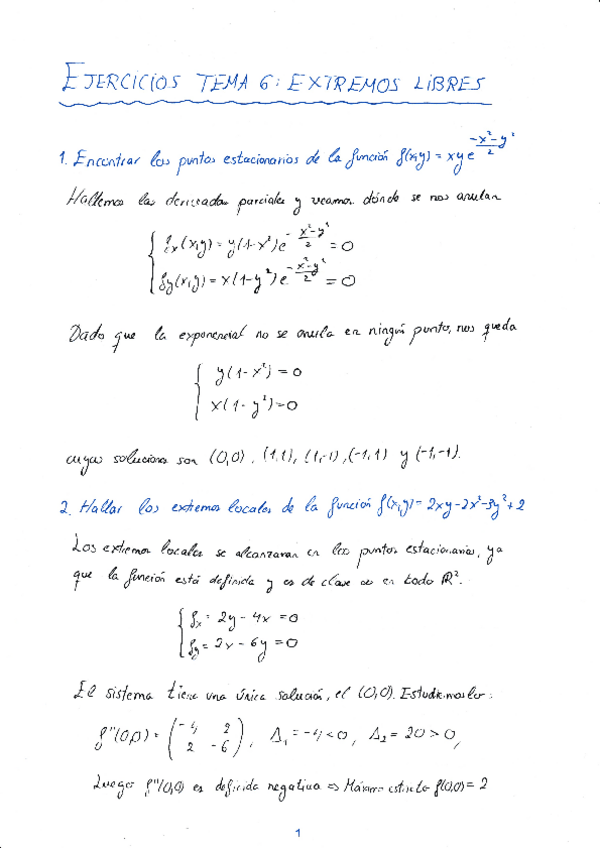 EJERCICIOS TEMA 6: EXTREMOS LIBRES
1. Encontrar los puntos estacionarios de la función f(x,y) = xy e^((-x²-y²)/2)
Hallemos las derivadas parciales y veamos dónde se nos anulan
{ fx(x,y) = y(1-x²)e^(-(x²-y²)/2) = 0
fy(x,y) = x(1-y²)e^(-(x²-y²)/2) = 0
Dado que la exponencial no se anula en ningún punto, nos queda
{ y(1-x²) = 0
x(1-y²) = 0
cuyas soluciones son (0,0), (1,1), (1,-1), (-1,1) y (-1,-1).
2. Hallar los extremos locales de la función f(x,y) = 2xy-2x²-3y²+2
Los extremos locales se alcanzaran en los puntos estacionarios, ya
que la función está definida y es de clase ∞ en todo R².
{ fx = 2y - 4x = 0
fy = 2x - 6y = 0
El sistema tiene una única solución, el (0,0). Estudiémoslo:
f''(0,0) = ( -4 2
2 -6 ), Δ₁ = -4 < 0, Δ₂ = 20 > 0,
Luego f''(0,0) es definida negativa ⇒ Máximo estricto f(0,0) = 2
1